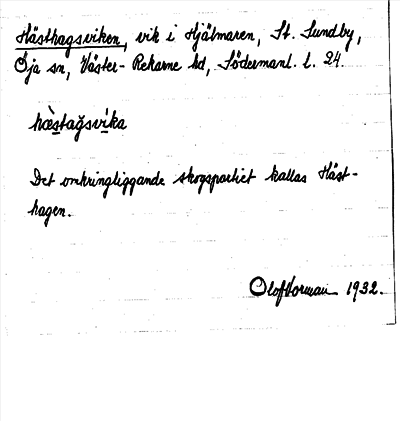 Hästhagsviken, vik i Hjälmaren, St. Sundby,
Öja sn, Väster-Rekarne hd, Södermanl. l. 24.
hæ̀stağsvi̇ka
Det omkringliggande skogspartiet kallas Häst-
hagen.
Olof Norman 1932.